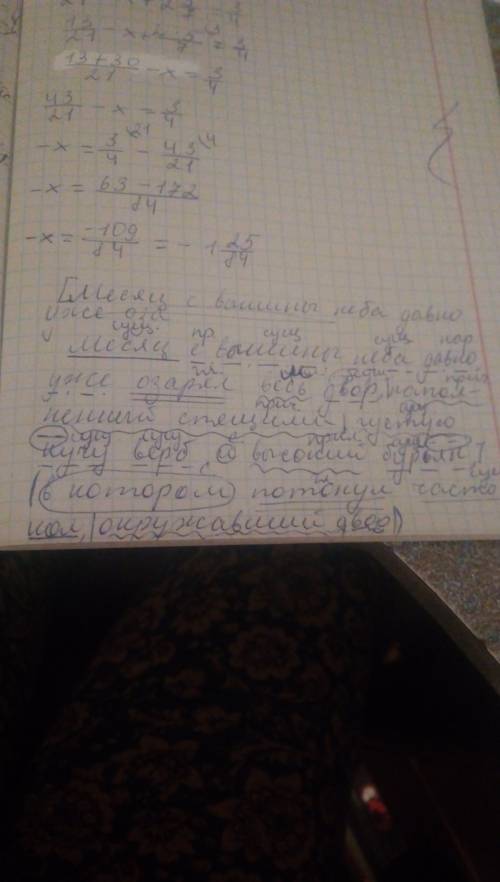 13/21 - x + 
13+30/21 - x = 3/4
43/21 - x = 3/4
-x = 3/4 - 43/21
-x = 63 - 172/84
-x = -109/84 = - 1 25/84
[Месяц с вышины неба давно
уже оза
сущ. пр. сущ сущ нар.
Месяц с вышины неба давно
гл.
уже озарял весь двор, напол-
прич
ненный спящими, густую
сущ сущ прил.
кучу верб и высокий бурьян,
(в котором потонул часто
кол, окружавший двор)